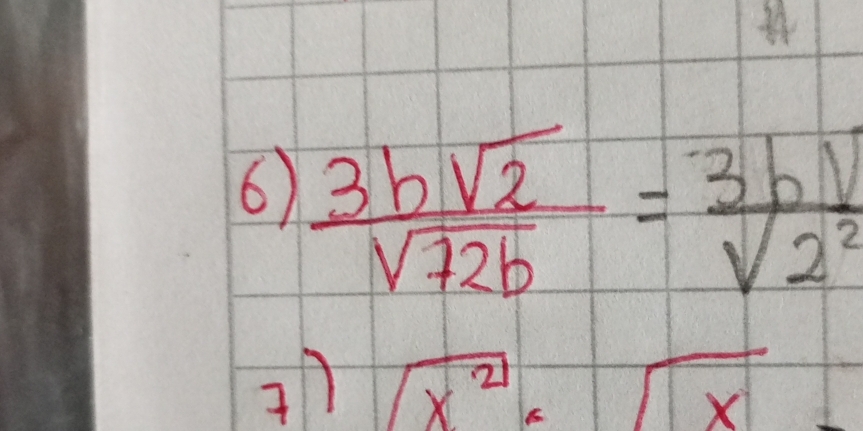 6) 3b√2 / √72b = 3b√ / √2²
7) √x² · √x